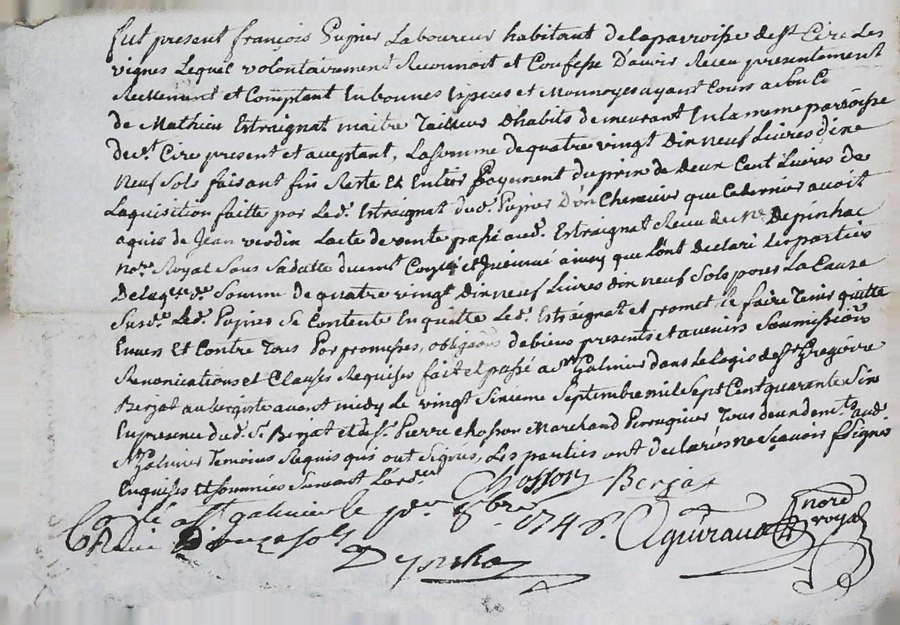 fut present françois pupier Laboureur habitant delaparroisse de st Cire Les
vignes Lequel volontairement Reconnoit et Confesse D'avoir Receu presentement
Reellement et Comptant En bonnes Especes et Monnoyes ayant Cours a son C
de Mathieu Estraignat maitre Tailleur D'habits demeurant En la meme parroisse
de st. Cire present et aceptant, La somme de quatre vingt Dix neuf Livres dix
neuf Sols faisant fin Reste Et Entier payement du prix de Deux Cent Livres de
Laquisition faitte par Le d. Estraignat du d. pupier D'un Chenevier que Ce dernier avoit
aquis de Jean verdin Lacte de vente passé aud. Estraignat Receu de Me Depinhac
nore Royal Sous Sa datte duement Controllé et Insinué ainsy que L'ont declaré Les parties
De laqelle de. Somme de quatre vingt Dix neuf Livres dix neuf Sols pour La Cause
Susde. Led. Pupier Se Contente En quitte Led. Estraignat et promet Le faire Tenir quitte
Envers Et Contre Tous Par promesses, obligaons de biens presents et avenirs Soumissions
Renonciations et Clauses Requises fait et passé a st Galmier dans Le Logis de sr Gregoire
Berjat aubergiste avant midy Le vingt Sixieme Septembre mil Sept Cent quarante Six
En presence du d. Sr Berjat et de sr. Pierre Chosson Marchand Perruquier Tous deux demts. aud.
st Galmier Temoins Requis qui ont Signés, Les parties ont declarées ne Sçavoir Signer
Enquises et Sommées Suivant L'orde
Chosson Berjat
Conlé a st galmier le per 8bre 1746. Aguiraud nore royal
Reçu Douze sols
Depinhac